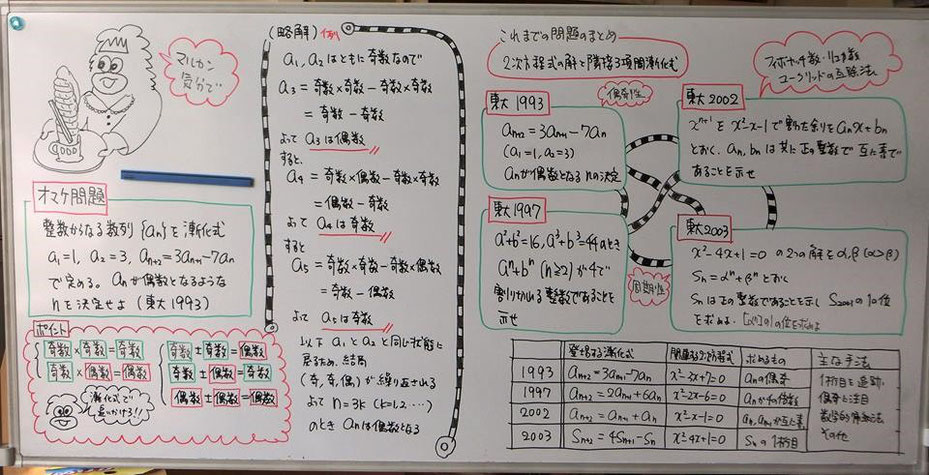 マルカン
気分で
オマケ問題
整数からなる数列{an}を漸化式
a1=1, a2=3, an+2=3an+1-7an
で定める。anが偶数となるような
nを決定せよ(東大1993)
ポイント
奇数×奇数=奇数
奇数×偶数=偶数
奇数±奇数=偶数
奇数±偶数=奇数
偶数±偶数=偶数
漸化式で
(略解)
a1,a2はともに奇数なので
a3=奇数×奇数-奇数×奇数
=奇数-奇数
よってa3は偶数
すると、
a4=奇数×偶数-奇数×奇数
=偶数-奇数
よってa4は奇数
すると
a5=奇数×奇数-奇数×偶数
=奇数-偶数
よってa5は奇数
以下a1とa2と同じ状態に
戻るため、結局
(奇,奇,偶)が繰り返される
よって n=3k (k=1,2…)
のときanは偶数となる
これまでの問題のまとめ
2次方程式の解と隣接3項間漸化式
フィボナッチ数・リュカ数
ユークリッドの互除法
東大1993
偶奇性
an+2=3an+1-7an
(a1=1, a2=3)
anが偶数となるnの決定
東大2002
x^n+1をx²-x-1で割った余りをanx+bn
とおく。an,bnは共に正の整数で互いに素で
あることを示せ
東大1997
a²+b²=16, a³+b³=44のとき
a^n+b^n (n≧2)が4で
割り切れる整数であることを
示せ
周期性
東大2003
x²-4x+1=0の2つの解をα,β(α>β)
Sn=α^n+β^nとおく
Snは正の整数であることを示し S2003の1の位
を求めよ.
の1の位を求めよ
登場する漸化式 関連する2次方程式 求めるもの 主な手法
1993 an+2=3an+1-7an x²-3x+7=0 anの偶奇 1桁目を追跡
1997 an+2=2an+1+6an x²-2x-6=0 anが4の倍数 偶奇に注目
2002 an+2=an+1+an x²-x-1=0 an,an+1が互いに素 数学的帰納法
2003 Sn+2=4Sn+1-Sn x²-4x+1=0 Snの1桁目 その他